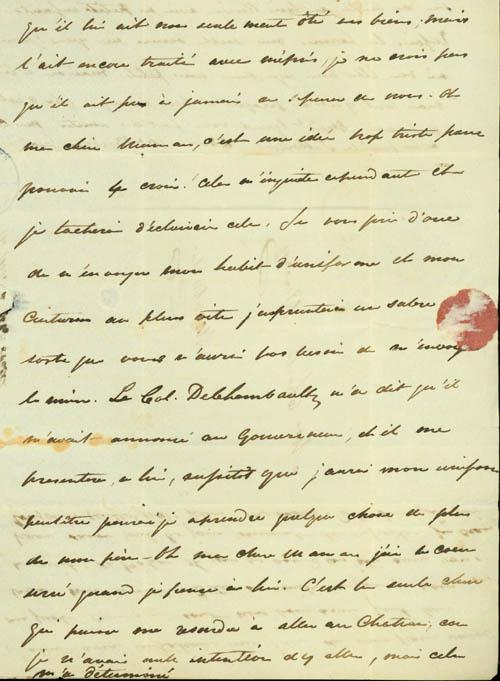 qu'il lui ait non seulement ôté ses biens, mais
l'ait encore traité avec mépris, je ne crois pas
qu'il ait pu à jamais se separer de nous. Oh
ma chère Maman, c'est une idée trop triste pour
pouvoir y croir. Cela m'inquiete cependant et
je tacherai d'éclaircir cela. Je vous prie d'avance
de m'envoyer mon habit d'uniforme et mon
Ceinturon au plus vite j'emprunterai un sabre
sorte que vous n'aurez pas besoin de m'envoyer
le mien. Le Col. DeChambault m'a dit qu'il
m'avait annoncé au Gouverneur, et il me
presentera, a lui, sitot que j'aurai mon uniforme
peutêtre pourai je aprendre quelque chose de plus
de mon père. Oh ma chere Maman j'ai le coeur
serré quand je pense à lui. C'est la seule chose
qui puisse me resoudre à aller au Chateau, car
je n'avais nulle intention d'y aller, mais cela
m'a déterminé